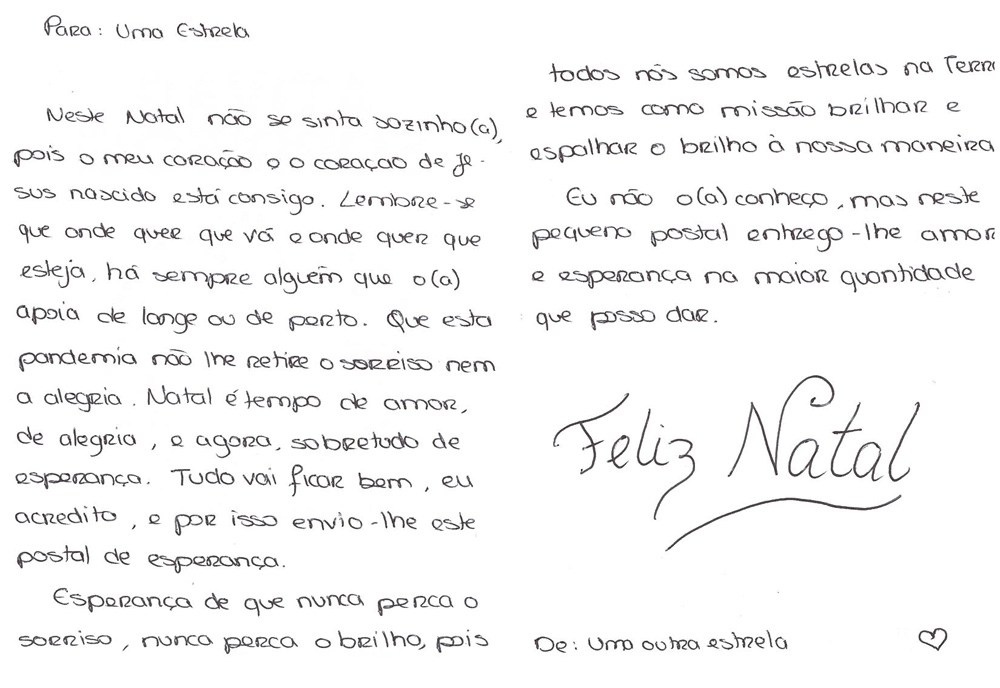 Para: Uma Estrela
Neste Natal não se sinta sozinho(a),
pois o meu coração e o coraçao de Je-
sus nascido está consigo. Lembre-se
que onde quer que vá e onde quer que
esteja, há sempre alguém que o(a)
apoia de longe ou de perto. Que esta
pandemia não lhe retire o sorriso nem
a alegria. Natal é tempo de amor,
de alegria, e agora, sobretudo de
esperança. Tudo vai ficar bem, eu
acredito, e por isso envio-lhe este
postal de esperança.
Esperança de que nunca perca o
sorriso, nunca perca o brilho, pois
todos nós somos estrelas na Terra
e temos como missão brilhar e
espalhar o brilho à nossa maneira
Eu não o(a) conheço, mas neste
pequeno postal entrego-lhe amor
e esperança na maior quantidade
que posso dar.
Feliz Natal
De: Uma outra estrela